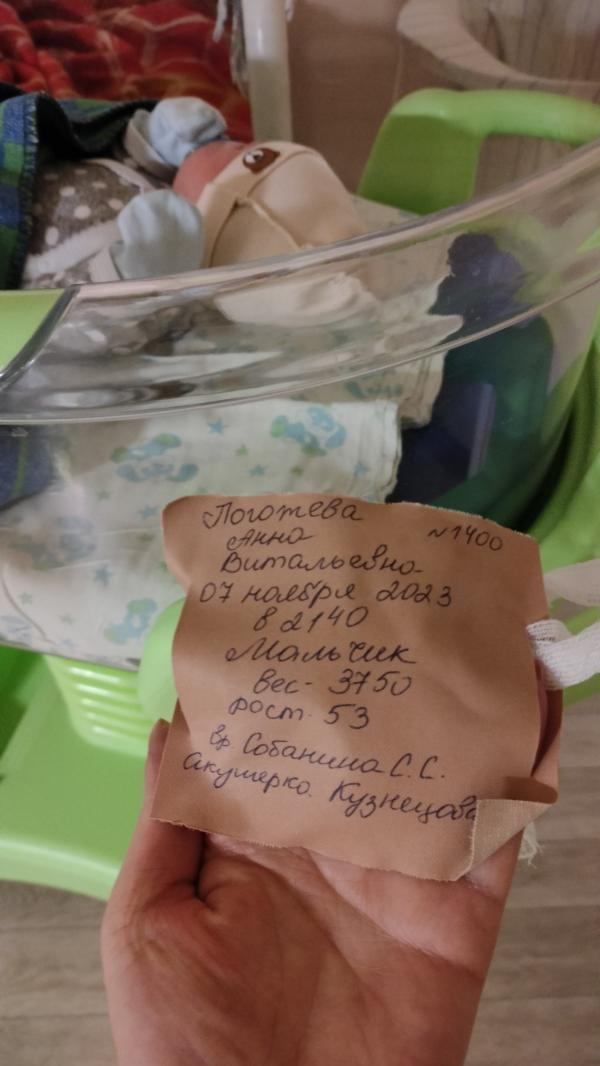 Логотева
№1400
Анна
Витальевна
07 ноября 2023
в 2140
Мальчик
вес- 3750
рост- 53
вр. Собанина С.С.
Акушерка. Кузнецова